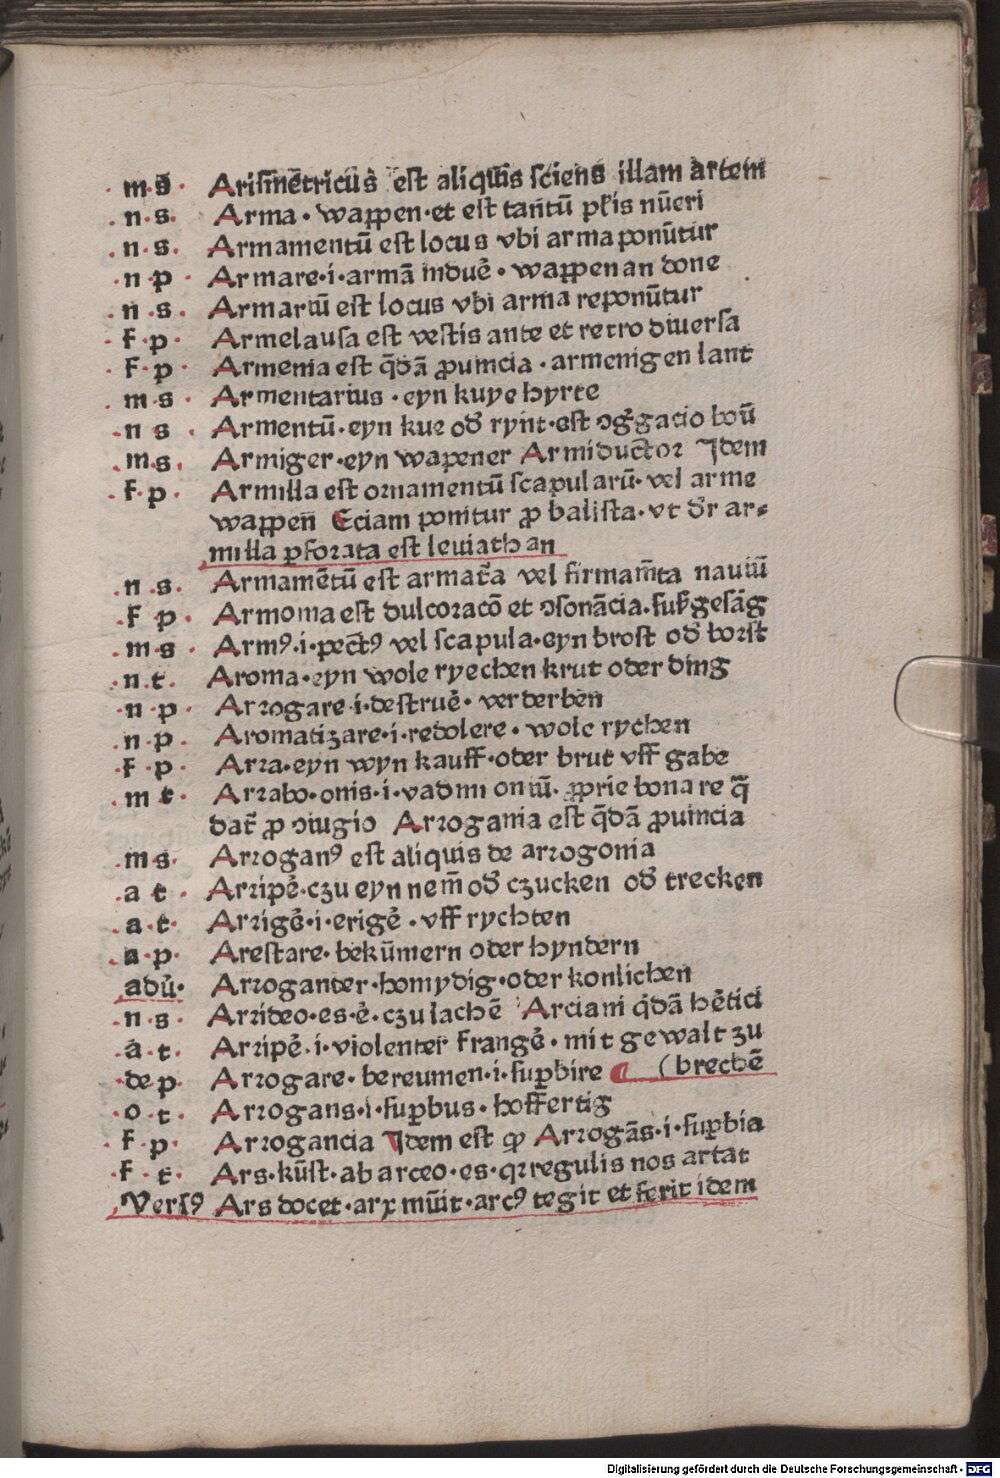 m·s· Arismētricus est aliquis sciens illam artem
n·s· Arma·wappen·et est tantū pl̄is nūeri
n·s· Armamentū est locus vbi arma ponūtur
n·p· Armare·i·armā induē·wappen an done
n·s· Armariū est locus vbi arma reponūtur
f·p· Armelausa est vestis ante et retro diuersa
f·p· Armenia est q̄dā ꝓuincia·armenigen lant
m·s· Armentarius·eyn kuye hyrte
n·s· Armentū·eyn kue od̄ rynt·est ꝯḡgacio boū
m·s· Armiger·eyn wapener Armiductor Idem
f·p· Armilla est ornamentū scapularū·vel arme
wappen Eciam ponitur ꝓ balista·vt dr̄ ar⸗
milla ꝑforata est leuiathan
n·s· Armamētū est armat̄a vel firmam̄ta nauiū
f·p· Armonia est dulcoracō et ꝯsonācia·suß gesāg
m·s· Armꝰ·i·pectꝰ vel scapula·eyn brost od̄ borst
n·t· Aroma·eyn wole ryechen krut oder ding
n·p· Arrogare·i·destruē·verderben
n·p· Aromatizare·i·redolere·wole rychen
f·p· Arra·eyn wyn kauff·oder brut vff gabe
m·t· Arrabo·onis·i·vadimoniū·ꝓprie bona re q̄
dat̄ ꝓ ꝯiugio Arrogania est q̄dā ꝓuincia
m·s· Arroganꝰ est aliquis de arrogonia
a·t· Arripē·czu eyn nem̄ od̄ czucken od̄ trecken
a·t· Arrigē·i·erigē·vff rychten
a·p· Arestare·bekūmern oder hyndern
adū· Arroganter·homydig·oder konlichen
n·s· Arrideo·es·ē·czu lachē Arciani q̄dā hētici
a·t· Arripē·i·violenter frangē·mit gewalt zu
de p· Arrogare·bereumen·i·suꝑbire (brechē
o·t· Arrogans·i·suꝑbus·hoffertig
f·p· Arrogancia Idem est ꝙ Arrogās·i·suꝑbia
f·t· Ars·kūst·ab arceo·es·qꝛ regulis nos artat
Versꝰ Ars docet·arx mūit·arcꝰ tegit et ferit idem
Digitalisierung gefördert durch die Deutsche Forschungsgemeinschaft - DFG